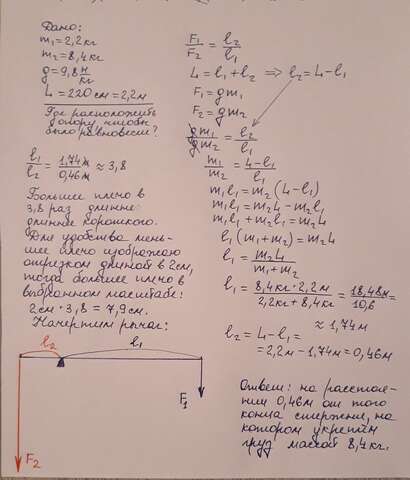 Дано:
m₁ = 2,2 кг
m₂ = 8,4 кг
g = 9,8 н/кг
L = 220 см = 2,2 м
Где расположить
опору, чтобы
было равновесие?
l₁/l₂ = 1,74м/0,46м ≈ 3,8
Большее плечо в
3,8 раз длиннее
длиннее короткого.
Для удобства мень-
шее плечо изображаю
отрезком длиной в 2см,
тогда большее плечо в
выбранном масштабе:
2см · 3,8 = 7,9см.
Начертим рычаг:
l₂
l₁
F₁
F₂
F₁/F₂ = l₂/l₁
L = l₁ + l₂ ⇒ l₂ = L - l₁
F₁ = gm₁
F₂ = gm₂
gm₁/gm₂ = l₂/l₁
m₁/m₂ = L - l₁/l₁
m₁l₁ = m₂(L - l₁)
m₁l₁ = m₂L - m₂l₁
m₁l₁ + m₂l₁ = m₂L
l₁(m₁ + m₂) = m₂L
l₁ = m₂L/m₁ + m₂
l₁ = 8,4кг · 2,2м/2,2кг + 8,4кг = 18,48м/10,6 =
≈ 1,74м
l₂ = L - l₁ =
= 2,2м - 1,74м = 0,46м
Ответ: на расстоя-
нии 0,46м от того
конца стержня, на
котором укреплён
груз массой 8,4кг.